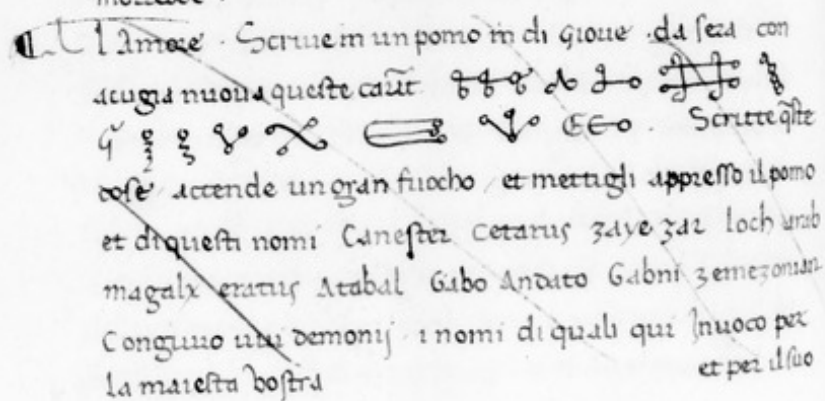 l Amore · Scriue in un pomo in di gioue · da sera con
acugia nuoua queste
Scritte q̃ste
cose accende un gran fuocho et mettigli appresso il pomo
et di questi nomi Canester Cetarus zaye zar loch urab
magalx eratus Atabal Gabo Andato Gabni zemezonian
Congiuro uui demonij i nomi di quali qui Inuoco per
la maiesta vostra et per il suo